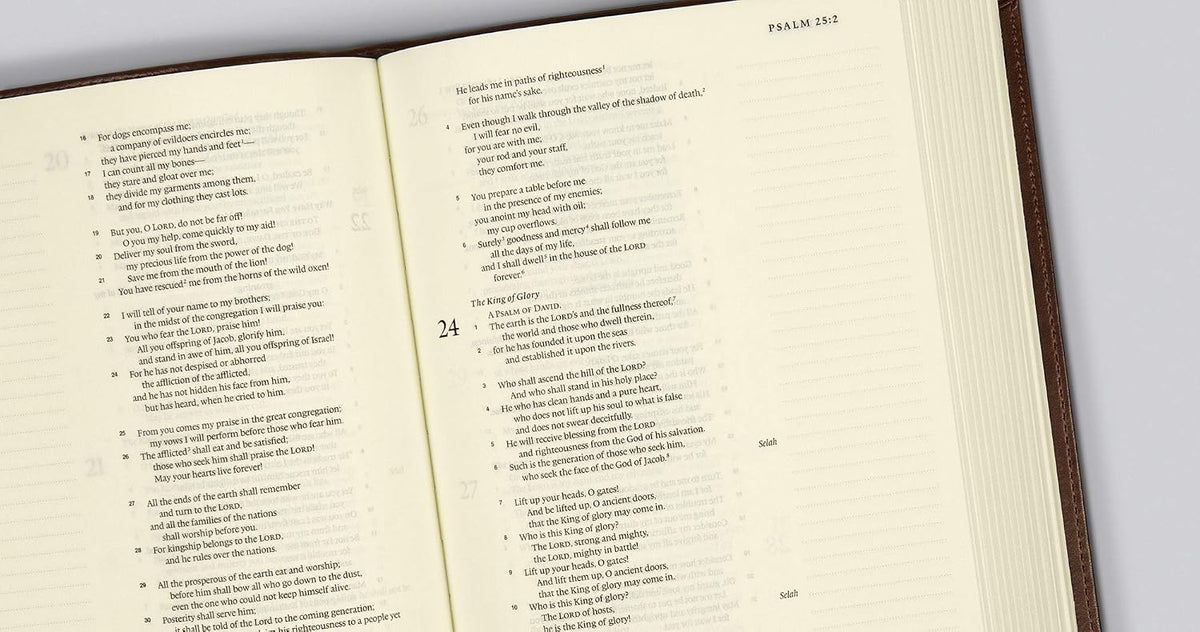 16 For dogs encompass me;
a company of evildoers encircles me;
they have pierced my hands and feet¹—
17 I can count all my bones—
they stare and gloat over me;
18 they divide my garments among them,
and for my clothing they cast lots.
19 But you, O LORD, do not be far off!
O you my help, come quickly to my aid!
20 Deliver my soul from the sword,
my precious life from the power of the dog!
21 Save me from the mouth of the lion!
You have rescued² me from the horns of the wild oxen!
22 I will tell of your name to my brothers;
in the midst of the congregation I will praise you:
23 You who fear the LORD, praise him!
All you offspring of Jacob, glorify him,
and stand in awe of him, all you offspring of Israel!
24 For he has not despised or abhorred
the affliction of the afflicted,
and he has not hidden his face from him,
but has heard, when he cried to him.
25 From you comes my praise in the great congregation;
my vows I will perform before those who fear him.
26 The afflicted³ shall eat and be satisfied;
those who seek him shall praise the LORD!
May your hearts live forever!
27 All the ends of the earth shall remember
and turn to the LORD,
and all the families of the nations
shall worship before you.
28 For kingship belongs to the LORD,
and he rules over the nations.
29 All the prosperous of the earth eat and worship;
before him shall bow all who go down to the dust,
even the one who could not keep himself alive.
30 Posterity shall serve him;
it shall be told of the Lord to the coming generation;
his righteousness to a people yet
PSALM 25:2
He leads me in paths of righteousness¹
for his name's sake.
4 Even though I walk through the valley of the shadow of death,²
I will fear no evil,
for you are with me;
your rod and your staff,
they comfort me.
5 You prepare a table before me
in the presence of my enemies;
you anoint my head with oil;
my cup overflows.
6 Surely³ goodness and mercy⁴ shall follow me
all the days of my life,
and I shall dwell⁵ in the house of the LORD
forever.⁶
The King of Glory
A PSALM OF DAVID.
24 1 The earth is the LORD's and the fullness thereof,⁷
the world and those who dwell therein,
2 for he has founded it upon the seas
and established it upon the rivers.
3 Who shall ascend the hill of the LORD?
And who shall stand in his holy place?
4 He who has clean hands and a pure heart,
who does not lift up his soul to what is false
and does not swear deceitfully.
5 He will receive blessing from the LORD
and righteousness from the God of his salvation.
6 Such is the generation of those who seek him,
who seek the face of the God of Jacob.⁸ Selah
7 Lift up your heads, O gates!
And be lifted up, O ancient doors,
that the King of glory may come in.
8 Who is this King of glory?
The LORD, strong and mighty,
the LORD, mighty in battle!
9 Lift up your heads, O gates!
And lift them up, O ancient doors,
that the King of glory may come in.
10 Who is this King of glory?
The LORD of hosts,
he is the King of glory! Selah